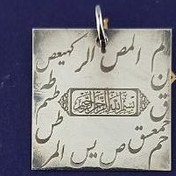 الم المص الر كهيعص
ن
ق
طه
طسم
بسم الله الرحمن الرحيم
طس
حمعسق
حم
المر يس ص